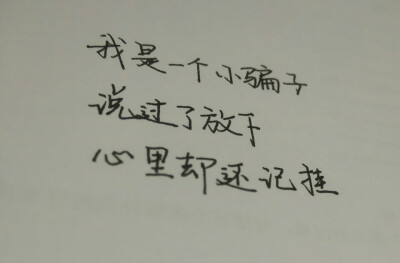 我是一个小骗子
说过了放下
心里却还记挂